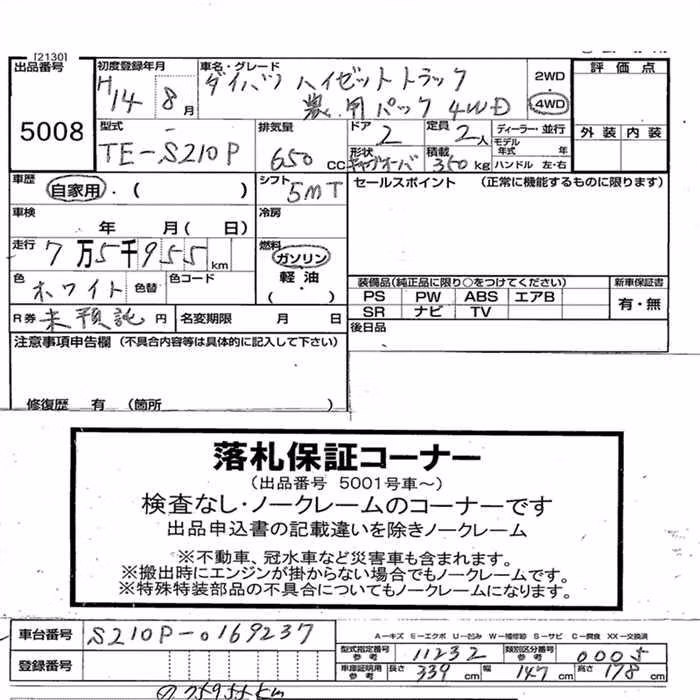 [2130]
出品番号
5008
初度登録年月
H14 8月
車名・グレード
ダイハツ ハイゼットトラック
農用パック 4WD
2WD
4WD
評価点
外装 内装
型式
TE-S210P
排気量
650cc
ドア
2
定員
2人
形状
キャブオーバ
積載
350kg
ディーラー・並行
モデル年式 年
ハンドル 左・右
車歴
自家用 ・( )
シフト
5MT
セールスポイント (正常に機能するものに限ります)
車検
年 月( 日)
冷房
走行
7万5千955km
燃料
ガソリン
・
軽油
( )
色
ホワイト
色替
色コード
装備品(純正品に限り○をつけてください)
PS PW ABS エアB
SR ナビ TV
新車保証書
有・無
R券 未預託 円
名変期限 月 日
後日品
注意事項申告欄 (不具合内容等は具体的に記入して下さい)
修復歴 有 (箇所 )
落札保証コーナー
(出品番号 5001号車~)
検査なし・ノークレームのコーナーです
出品申込書の記載違いを除きノークレーム
※不動車、冠水車など災害車も含まれます。
※搬出時にエンジンが掛からない場合でもノークレームです。
※特殊特装部品の不具合についてもノークレームになります。
車台番号
S210P-0169237
A-キズ E-エクボ U-凹み W-補修跡 S-サビ C-腐食 XX-交換済
型式指定番号 参考
11232
類別区分番号 参考
0005
登録番号
車庫証明用 参考
長さ 339cm 幅 147cm 高さ 178cm